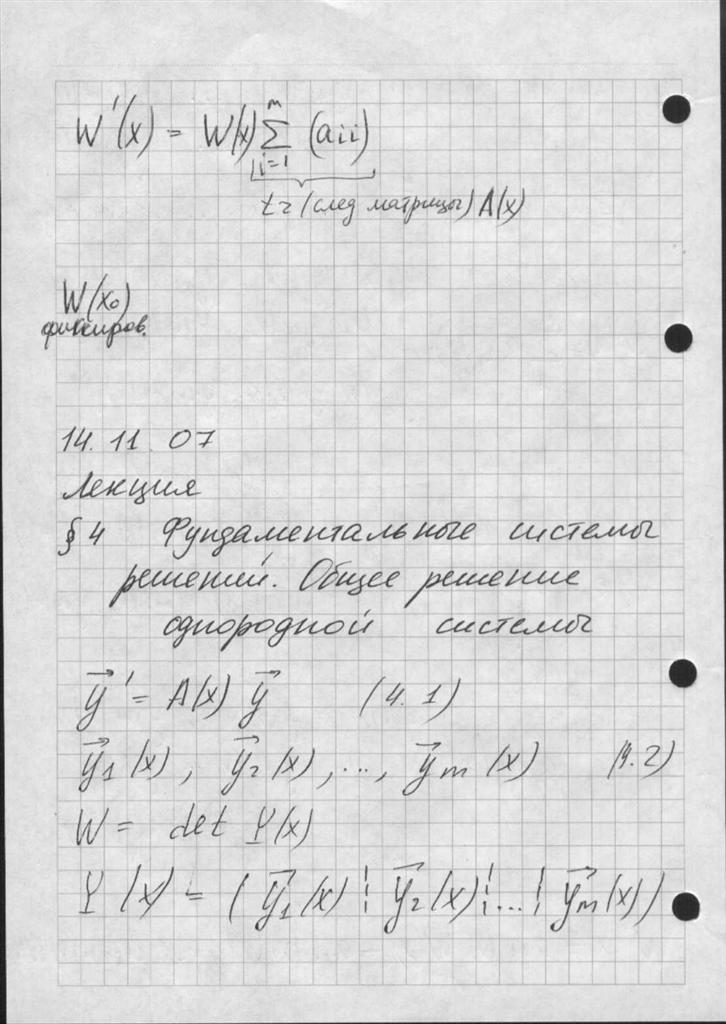 W'(x) = W(x) Σ (aii)
m
i=1
tr (след матрицы) A(x)
W(x₀)
фиксиров.
14. 11. 07
Лекция
§ 4 Фундаментальные системы
решений. Общее решение
однородной системы
y⃗' = A(x) y⃗ (4.1)
y⃗₁(x), y⃗₂(x), ..., y⃗m(x) (4.2)
W = det Y(x)
Y(x) = ( y⃗₁(x) ¦ y⃗₂(x) ¦ ... ¦ y⃗m(x) )